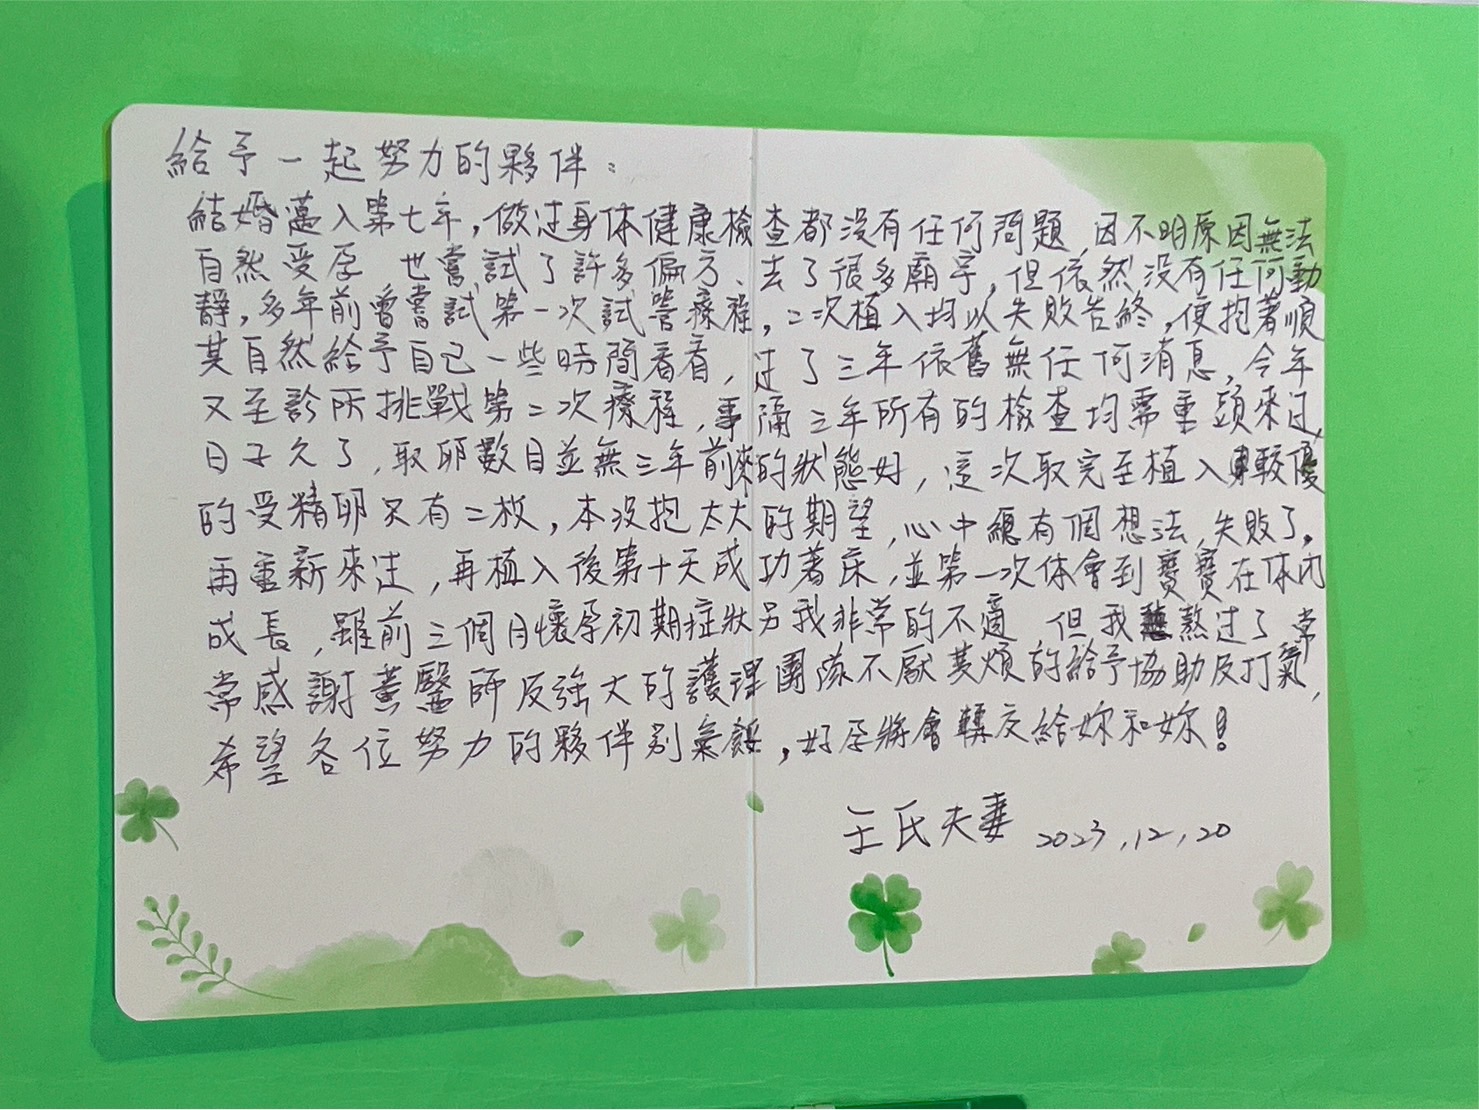 給予一起努力的夥伴：
結婚邁入第七年，做过身体健康檢查都沒有任何問題，因不明原因無法
自然受孕，也嘗試了許多偏方、去了很多廟宇，但依然沒有任何動
靜，多年前曾嘗試第一次試管療程，二次植入均以失敗告終，便抱著順
其自然給予自己一些時間看看，过了三年依舊無任何消息，今年
又至診所挑戰第二次療程，事隔三年所有的檢查均需重頭來过，
日子久了，取卵數目並無三年前來的狀態好，這次取完至植入較優
的受精卵只有二枚，本沒抱太大的期望，心中總有個想法，失敗了，
再重新來过，再植入後第十天成功著床，並第一次体會到寶寶在体內
成長，雖前三個月懷孕初期症狀另我非常的不適，但我熬过了，常
常感謝黃醫師及強大的護理團隊不厭其煩的給予協助及打氣，
希望各位努力的夥伴別氣餒，好孕將會轉交給妳和妳！
王氏夫妻 2023.12.20